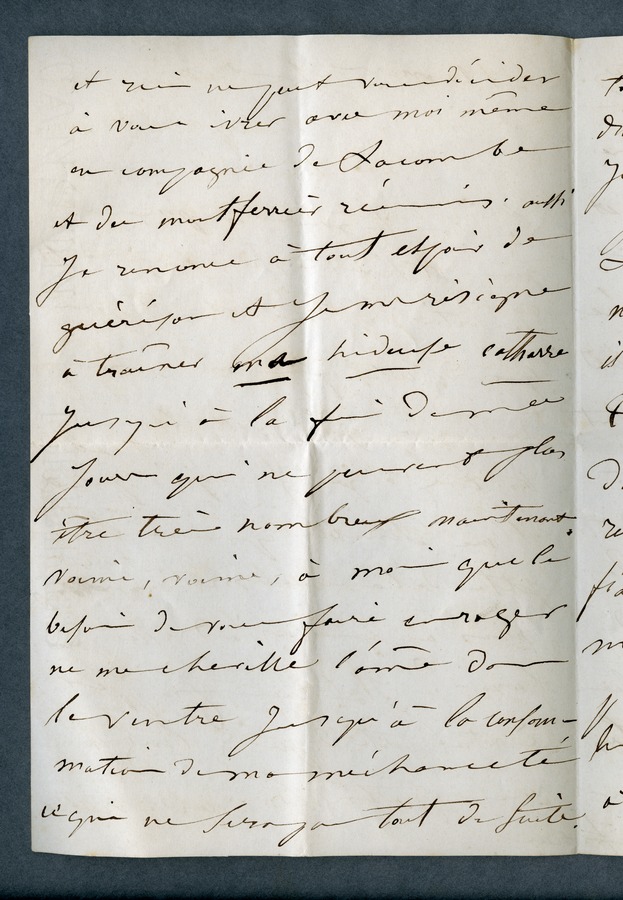 et rien ne peut vous décider
à vous ivrer avec moi même
en compagnie de Lacombe
et de montferrier réunis. aussi
Je renonce à tout espoir de
guérison et Je me résigne
à traîner ma hideuse catharre
Jusqu'à la fin de mes
Jours qui ne peuvent plus
être très nombreux maintenant
voisine, voisine, à moins que le
besoin de vous faire enrager
ne me cheville l'âme dans
le ventre Jusqu'à la consom-
mation de ma méchanceté
ce qui ne sera pas tout de suite.